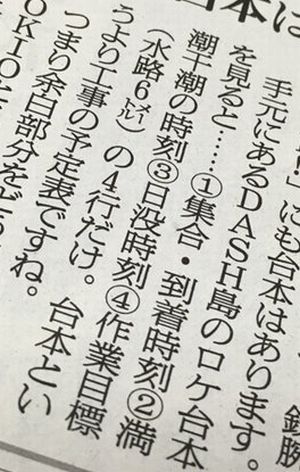 台本は
錦勝
!」にも台本はあります。
手元にあるDASH島のロケ台本
を見ると……①集合・到着時刻②満
潮干潮の時刻③日没時刻④作業目標
(水路6メートル)の4行だけ。台本とい
うより工事の予定表ですね。
つまり余白部分をど
OKIO